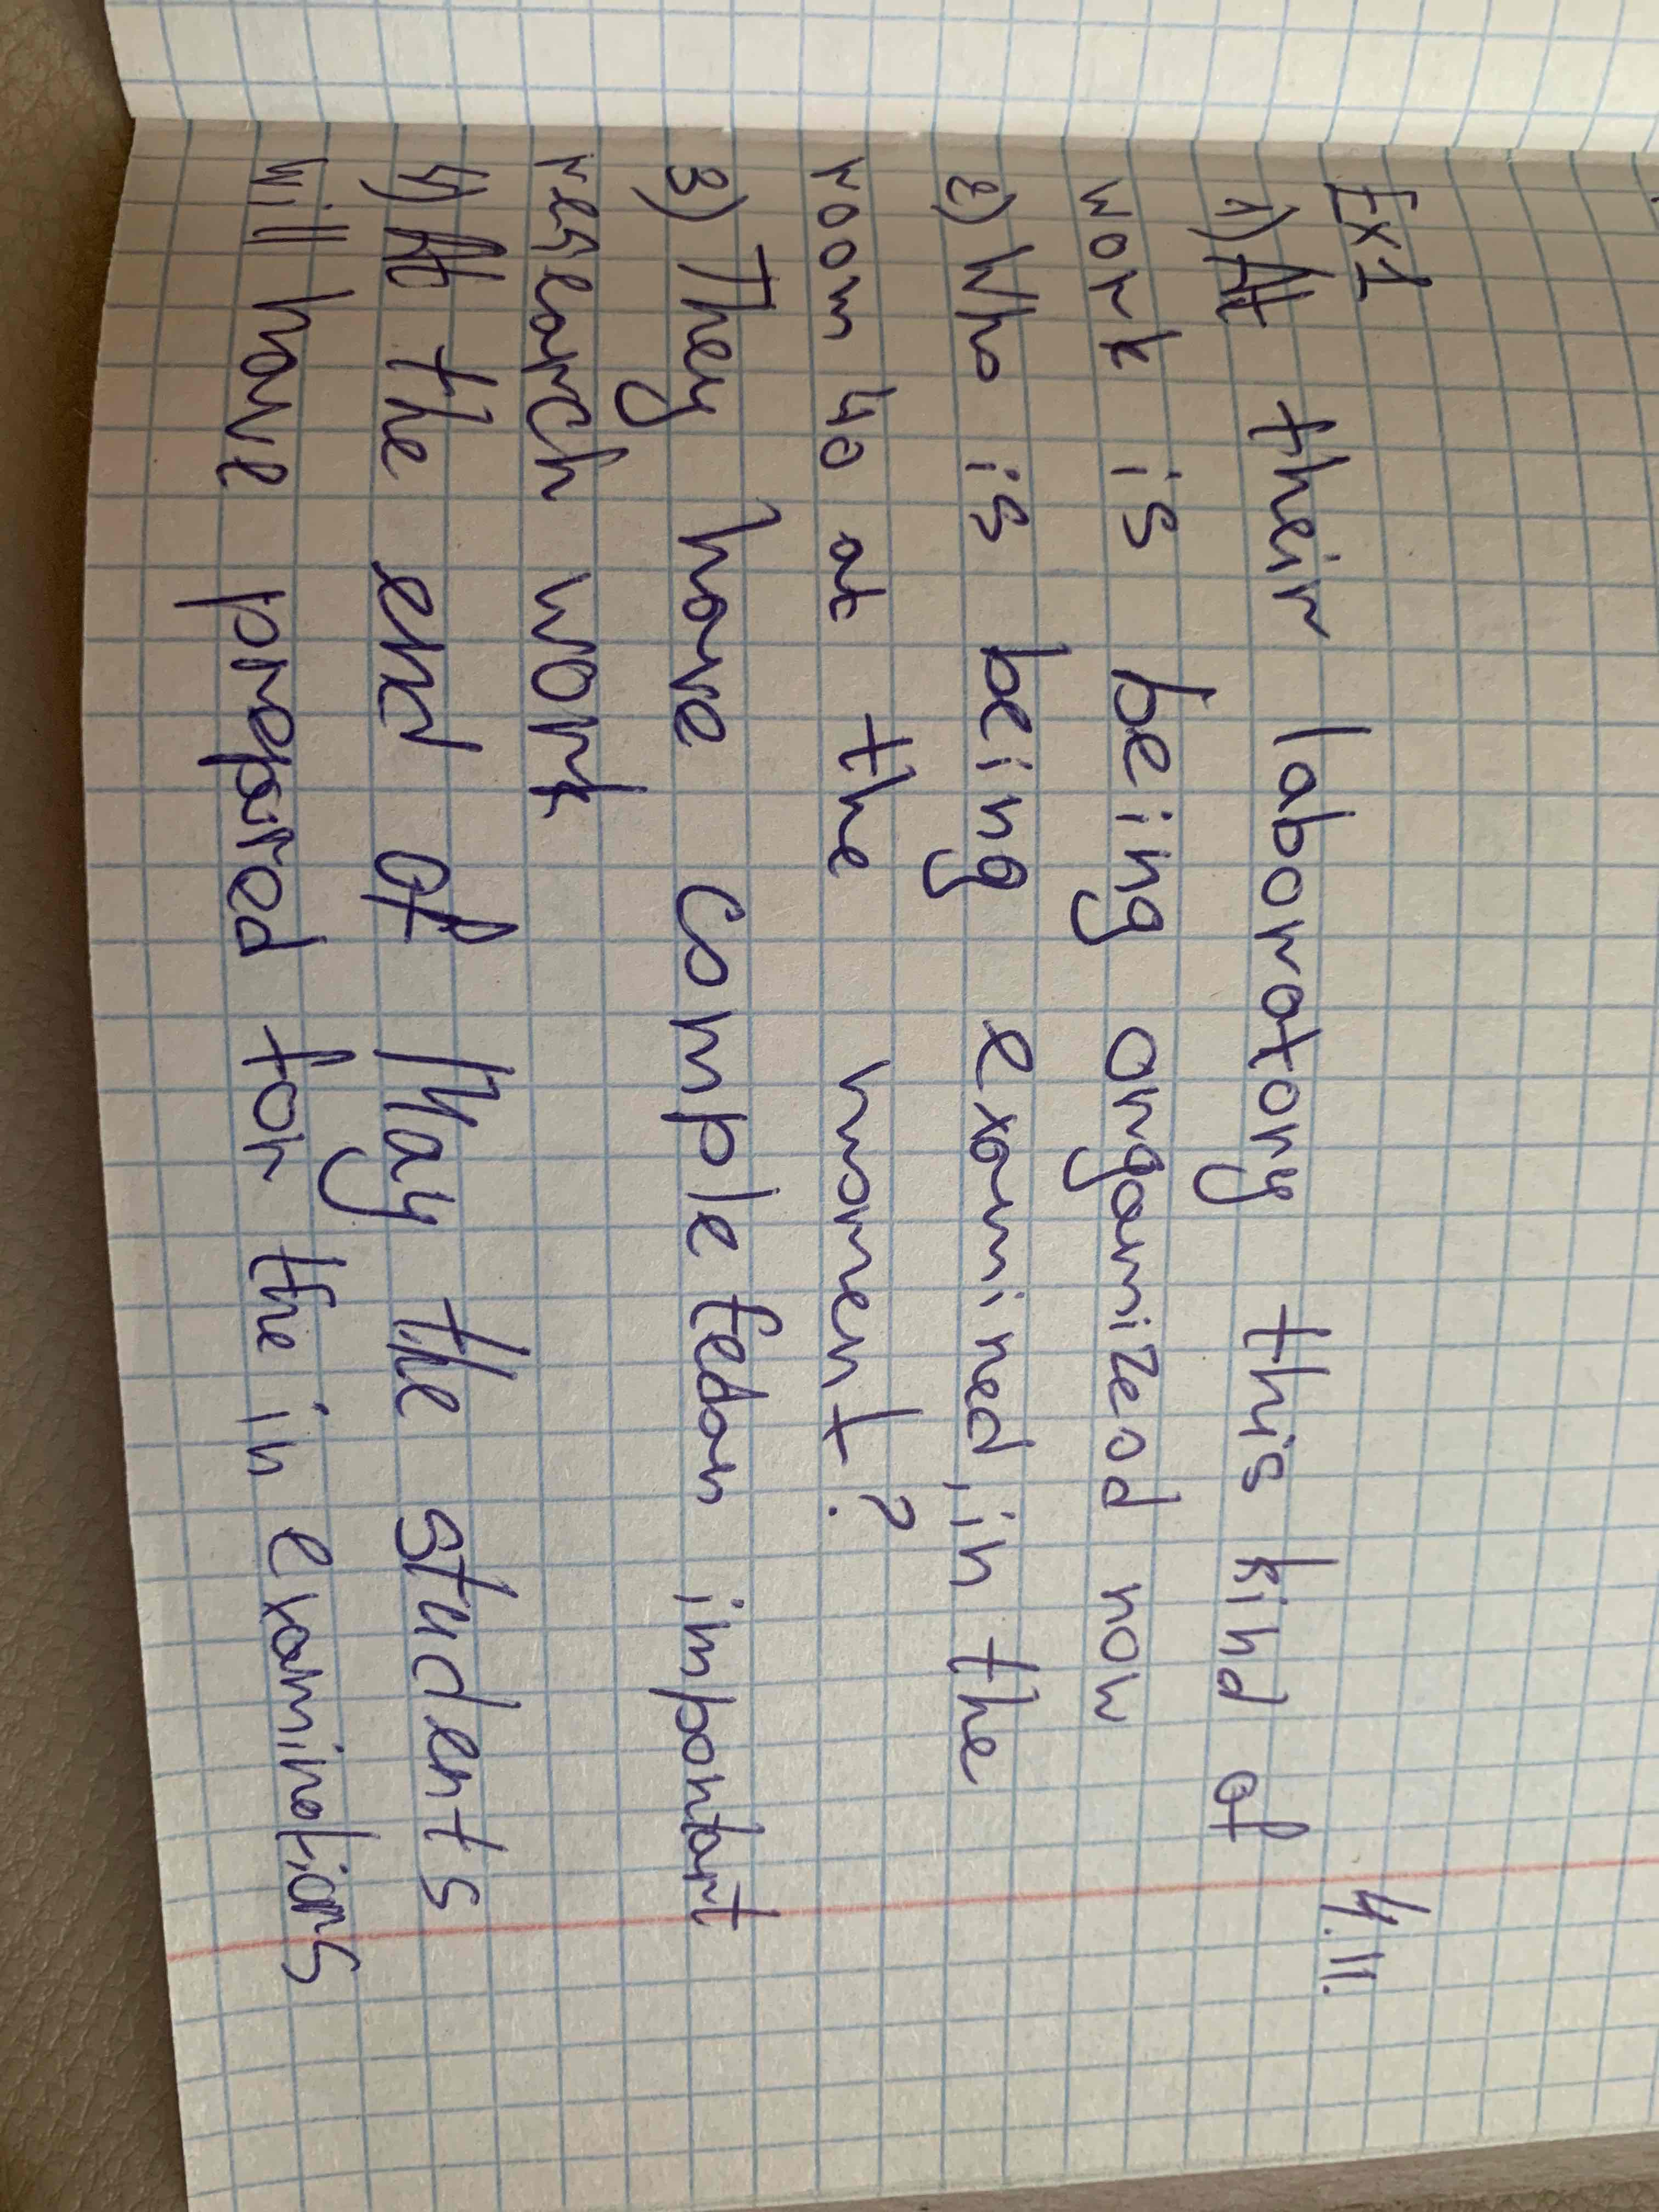 4.11.
Ex1
1) At their laboratory this kind of
work is being organized now
2) Who is being examined in the
room 40 at the moment?
3) They have completed an important
research work
4) At the end of May the students
will have prepared for the in examinations